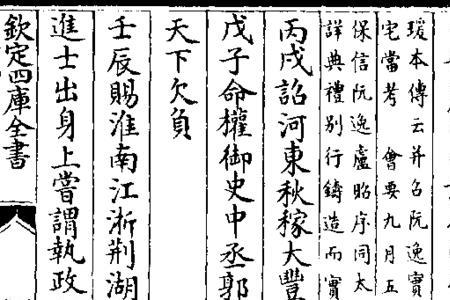 瑗本傳云并召阮逸實
宅當考　會要九月五
保信阮逸盧昭序同太
詳典禮别行鑄造而實
丙戌詔河東秋稼大豐
戊子命權御史中丞郭
天下欠負
壬辰賜淮南江浙荆湖
進士出身上嘗謂執政
欽定四庫全書